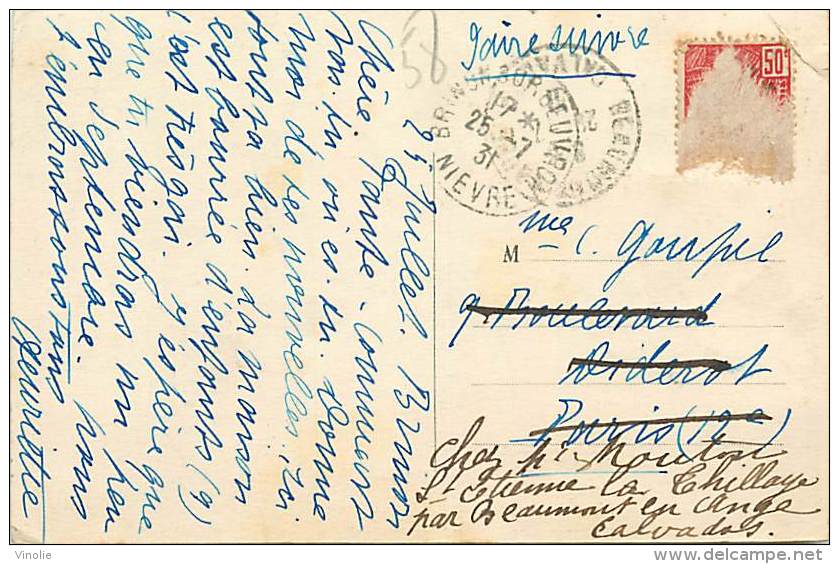 58
Faire suivre
50c
BRINON SUR BEUVRON
17 *
25 -7
31
NIEVRE
BEAUM
25 Juillet. Brinon
Chère Tante. Comment
vas-tu, où es-tu. Donne
moi de tes nouvelles. Ici
tout va bien. La maison
est bourrée d'enfants (9)
c'est très gai. J'espère que
que tu viendras un peu
en septembre. Nous
t'embrassons tous
Henriette
M me C. Goupil
9 Boulevard
Diderot
Paris (12e)
Chez Mr Moutost
St Etienne la Thillaye
par Beaumont en Auge
Calvados.
© Vinolie
delcampe.net